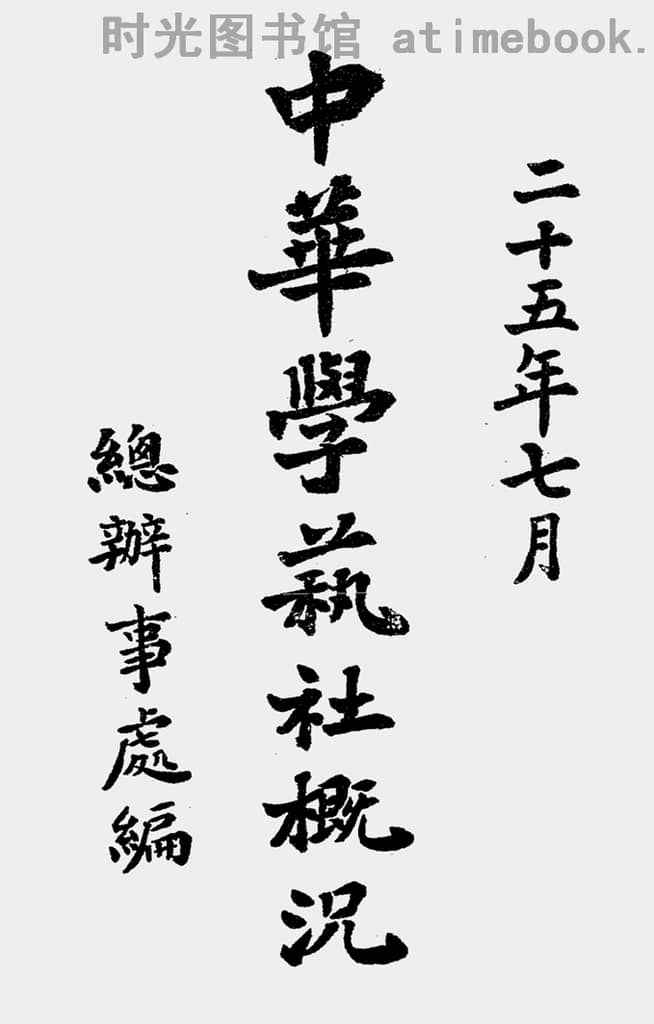 时光图书馆 atimebook.
二十五年七月
中華學藝社概况
總辦事處編